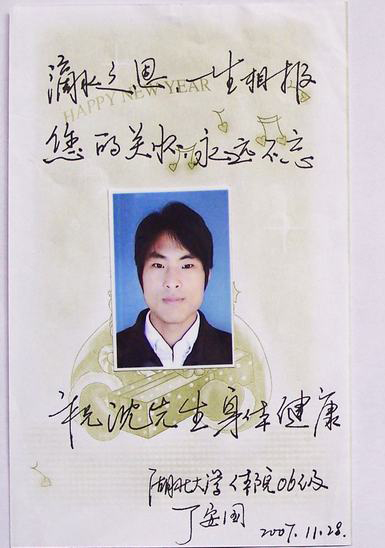 滴水之恩.一生相报
HAPPY NEW YEAR
您的关怀永远不忘
祝沈先生身体健康
湖北大学体院06级
丁安国
2007.11.28.